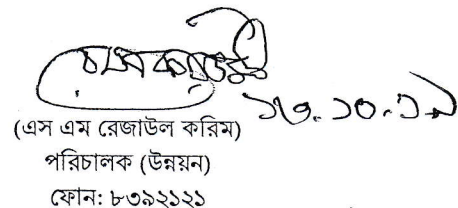 ১৩.১০.১৯
(এস এম রেজাউল করিম)
পরিচালক (উন্নয়ন)
ফোন: ৮৩৯২১২১